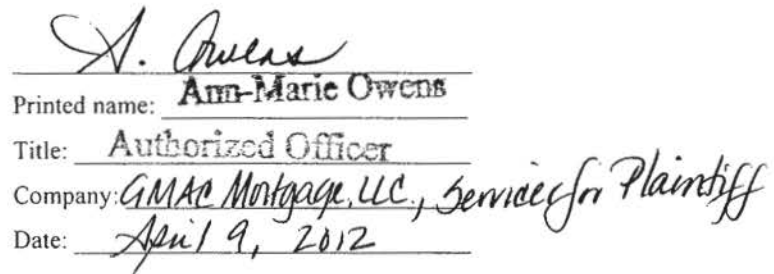 A. Owens
Printed name: Ann-Marie Owens
Title: Authorized Officer
Company: GMAC Mortgage, LLC., Servicer for Plaintiff
Date: April 9, 2012